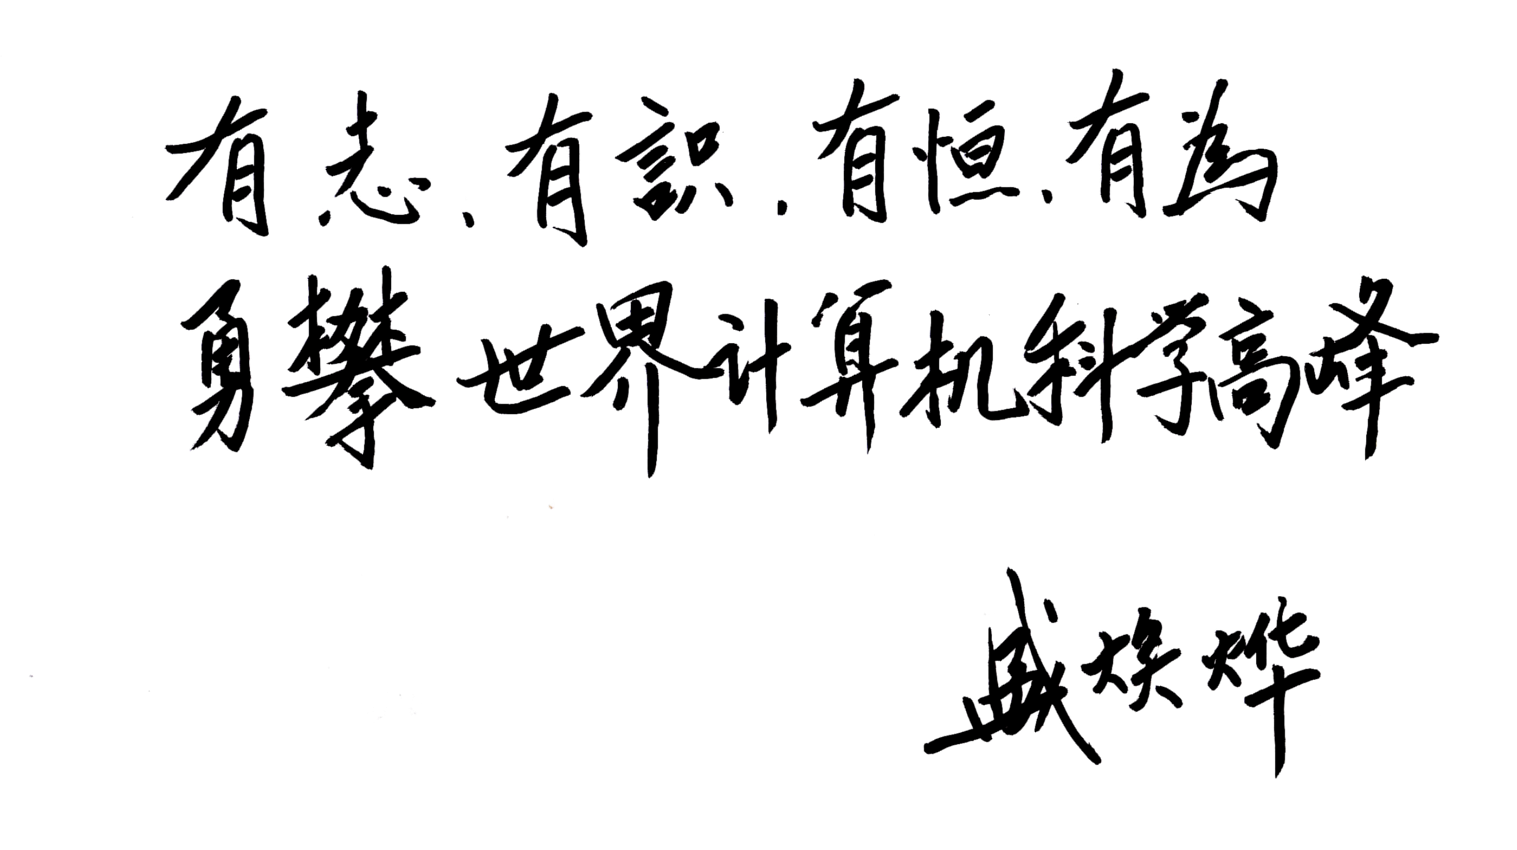 有志、有識、有恒、有為
勇攀世界计算机科学高峰
盛焕烨